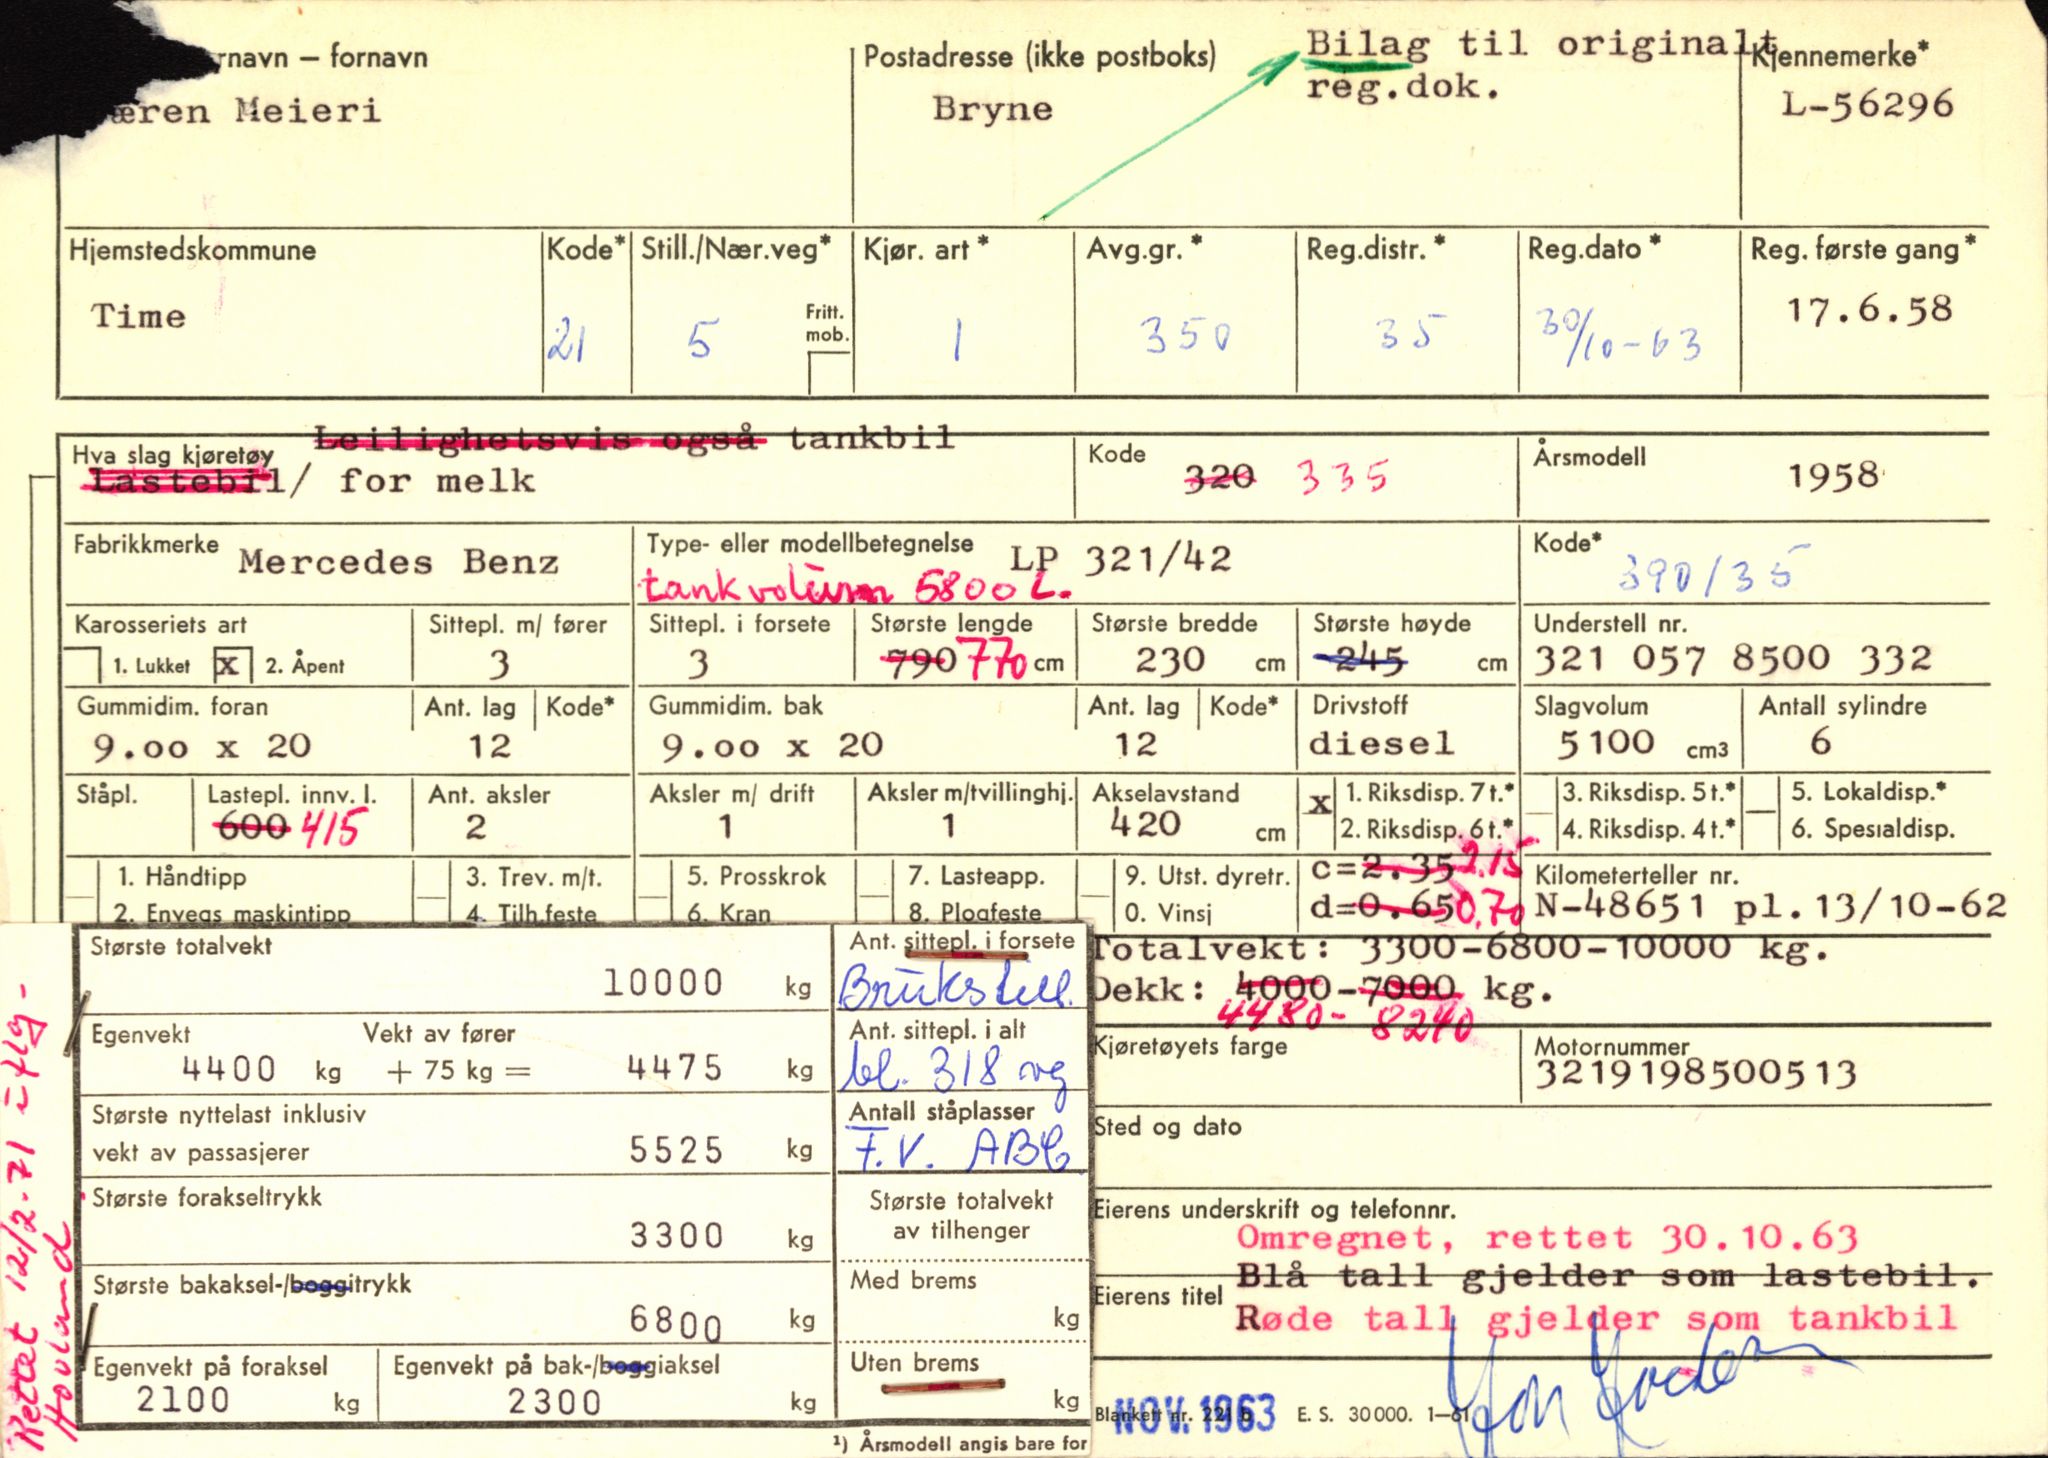 rnavn – fornavn
æren Meieri
Postadresse (ikke postboks)
Bryne
Bilag til originalt
reg.dok.
Kjennemerke*
L-56296
Hjemstedskommune
Time
Kode*
21
Still./Nær.veg*
5
Fritt.
mob.
Kjør. art *
1
Avg.gr. *
350
Reg.distr. *
35
Reg.dato *
30/10-63
Reg. første gang *
17.6.58
Leilighetsvis også tankbil
Hva slag kjøretøy
Lastebil/ for melk
Kode
320 335
Årsmodell
1958
Fabrikkmerke
Mercedes Benz
Type- eller modellbetegnelse
LP 321/42
tankvolum 5800 L.
Kode*
390/35
Karosseriets art
1. Lukket x 2. Åpent
Sittepl. m/ fører
3
Sittepl. i forsete
3
Største lengde
790 770 cm
Største bredde
230 cm
Største høyde
245 cm
Understell nr.
321 057 8500 332
Gummidim. foran
9.oo x 20
Ant. lag
12
Kode*
Gummidim. bak
9.oo x 20
Ant. lag
12
Kode*
Drivstoff
diesel
Slagvolum
5100 cm3
Antall sylindre
6
Ståpl.
Lastepl. innv. l.
600 415
Ant. aksler
2
Aksler m/ drift
1
Aksler m/tvillinghj.
1
Akselavstand
420 cm
x 1. Riksdisp. 7 t.*
2. Riksdisp. 6 t.*
3. Riksdisp. 5 t.*
4. Riksdisp. 4 t.*
5. Lokaldisp.*
6. Spesialdisp.
1. Håndtipp
2. Envegs maskintipp
3. Trev. m/t.
4. Tilh.feste
5. Prosskrok
6. Kran
7. Lasteapp.
8. Plogfeste
9. Utst. dyretr.
0. Vinsj
c=2.35 2.15
d=0.65 0.70
Kilometerteller nr.
N-48651 pl.13/10-62
Totalvekt: 3300-6800-10000 kg.
Dekk: 4000-7000 kg.
4480- 8240
Kjøretøyets farge
Motornummer
3219198500513
Sted og dato
Eierens underskrift og telefonnr.
Omregnet, rettet 30.10.63
Blå tall gjelder som lastebil.
Eierens titel
Røde tall gjelder som tankbil
Blankett nr. 221 b
NOV. 1963
E. S. 30000. 1–61
Største totalvekt
10000 kg
Egenvekt
4400 kg
Vekt av fører
+ 75 kg = 4475 kg
Største nyttelast inklusiv
vekt av passasjerer
5525 kg
Største forakseltrykk
3300 kg
Største bakaksel-/boggitrykk
6800 kg
Egenvekt på foraksel
2100 kg
Egenvekt på bak-/boggiaksel
2300 kg
Ant. sittepl. i forsete
Brukstill.
Ant. sittepl. i alt
bl. 318 vg
Antall ståplasser
F.V. ABC
Største totalvekt
av tilhenger
Med brems
kg
Uten brems
kg
¹) Årsmodell angis bare for
Rettet 12/2-71 i flg-
Hovland